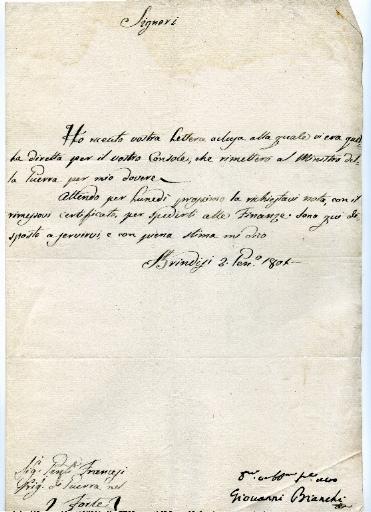 Signori
Hò riceuto vostra Lettera acclusa alla quale vi era quel
la diretta per il vostro Console, che rimetterò al Ministro del
la Guerra per mio dovere
Attendo per Lunedì prossimo la richiestavi nota, con il
rimessovi certificato, per spedirli alle Finanze. Sono qui di
sposto a servirvi, e con piena stima mi dico
Brindisi 2. Gen.º 1804
Sig.ⁱ Francesi
Prig.ⁱ di Guerra nel
Forte
Giovanni Bianchi